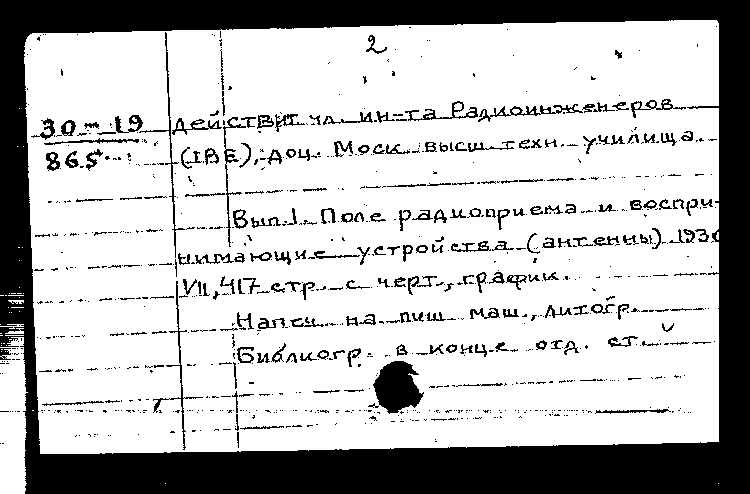 2
30-19 действит чл. ин-та Радиоинженеров
865 (IRE), доц. Моск. высш. техн. училища.
Вып. I. Поле радиоприема и воспри-
нимающие устройства (антенны) 1930
VII, 417 стр. с черт., график.
Напеч на пиш маш., литогр.
Библиогр. в конце отд. ст.